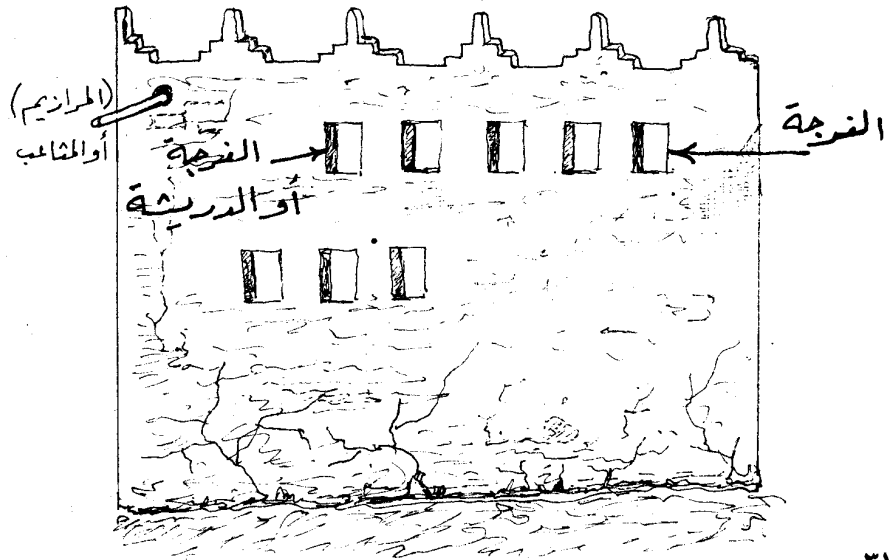 (المرازيم)
أو المثاعب
الفرجة
الفرجة
أو الدريشة
٣١